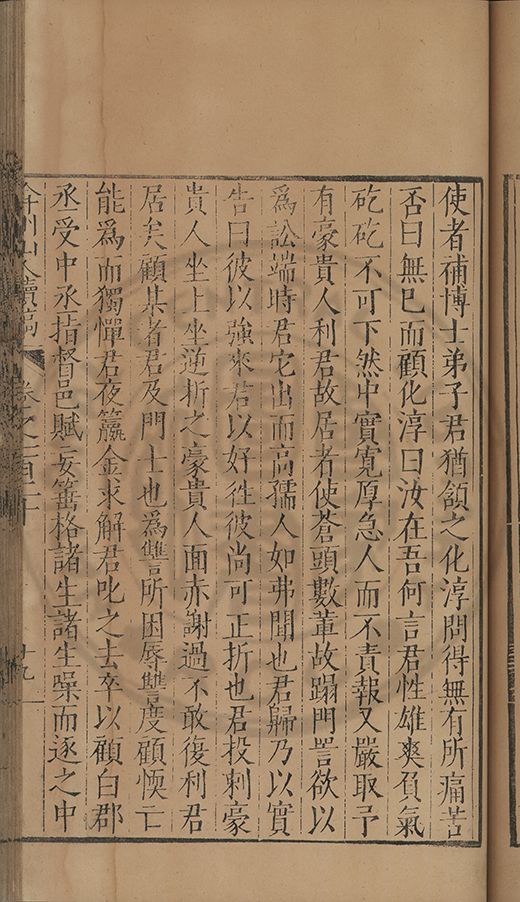 使者補博士弟子君猶頷之化淳問得無有所痛苦
否曰無已而顧化淳曰汝在吾何言君性雄爽負氣
矻矻不可下然中實寬厚急人而不責報又嚴取予
有豪貴人利君故居者使蒼頭數軰故蹋門詈欲以
爲訟端時君它出而高孺人如弗聞也君歸乃以實
告曰彼以強來君以好徃彼尚可正折也君投刺豪
貴人坐上坐逆折之豪貴人面赤謝過不敢復利君
居矣顧某者君及門士也爲讐所困辱讐度顧愞亡
能爲而獨憚君夜籝金求解君叱之去卒以顧白郡
丞受中丞指督邑賦妄箠格諸生諸生噪而逐之中
弇州山人續稿 卷之一百二十 十九